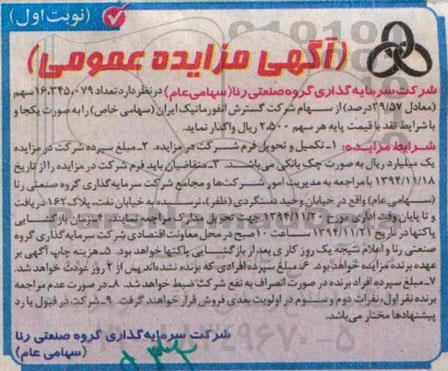 (نوبت اول)
(آگهی مزایده عمومی)
شرکت سرمایه‌گذاری گروه صنعتی رنا (سهامی عام) در نظر دارد تعداد ۱۶,۳۴۵,۰۷۹ سهم
(معادل ۲۹/۵۷ درصد) از سهام شرکت گسترش انفورماتیک ایران (سهامی خاص) را به صورت یکجا و
با شرایط نقد با قیمت پایه هر سهم ۲,۵۰۰ ریال واگذار نماید.
شرایط مزایده: ۱ـ تکمیل و تحویل فرم شرکت در مزایده. ۲ـ مبلغ سپرده شرکت در مزایده
یک میلیارد ریال به صورت چک بانکی می‌باشد. ۳ـ متقاضیان باید فرم شرکت در مزایده را از تاریخ
۱۳۹۴/۱۱/۱۸ با مراجعه به مدیریت امور شرکت‌ها و مجامع شرکت سرمایه‌گذاری گروه صنعتی رنا
(سهامی عام) واقع در خیابان وحید دستگردی (ظفر)، نرسیده به خیابان نفت، پلاک ۱۶۲ دریافت
و تا پایان وقت اداری مورخ ۱۳۹۴/۱۱/۲۰ جهت تحویل مدارک مراجعه نمایند. ۴ـ زمان بازگشایی
پاکتها در تاریخ ۱۳۹۴/۱۱/۲۱ ساعت ۱۰ صبح در محل معاونت اقتصادی شرکت سرمایه‌گذاری گروه
صنعتی رنا و اعلام نتیجه یک روز کاری بعد از بازگشایی پاکتها خواهد بود. ۵ـ هزینه چاپ آگهی بر
عهده برنده مزایده خواهد بود. ۶ـ مبلغ سپرده افرادی که برنده نشده‌اند پس از ۲ روز عودت خواهد شد.
۷ـ مبلغ سپرده افراد برنده در صورت انصراف به نفع شرکت ضبط خواهد شد. ۸ـ در صورت عدم مراجعه
برنده نفر اول، نفرات دوم و سوم در اولویت بعدی فروش قرار خواهند گرفت. ۹ـ شرکت در قبول یا رد
پیشنهادها مختار می‌باشد.
شرکت سرمایه‌گذاری گروه صنعتی رنا
(سهامی عام)